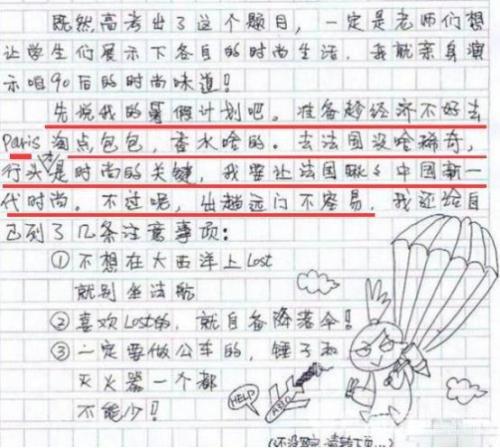 既然高考出了这个题目，一定是老师们想
让学生们展示下各自的时尚生活，我就亲身演
示咱90后的时尚味道！
先说我的暑假计划吧。准备趁经济不好去
Paris淘点包包，香水啥的。去法国没啥稀奇，
行头才是时尚的关键，我要让法国瞅瞅中国新一
代时尚。不过呢，出趟远门不容易，我还给自
己列了几条注意事项：
①不想在大西洋上Lost
就别坐法航
②喜欢Lost的，就自备降落伞！
③一定要做公车的，锤子和
灭火器一个都
不能少！
HELP
(还没写完，请转下页...)